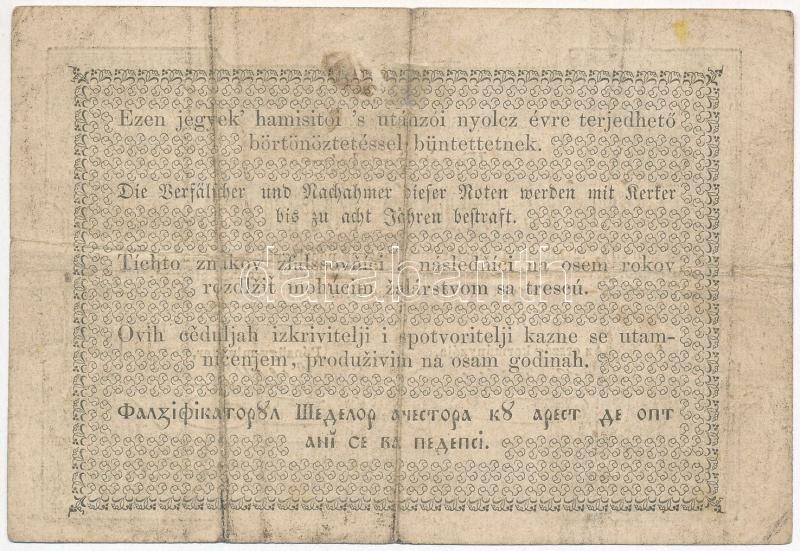 Ezen jegyek' hamisitói 's utánzói nyolcz évre terjedhető
börtönöztetéssel büntettetnek.
Die Verfälscher und Nachahmer dieser Noten werden mit Kerker
bis zu acht Jahren bestraft.
Tichto znakov zfalšovňici následňici na osem rokov
rozdĺžit mohúcim žalárstvom sa trescú.
Ovih cěduljah izkrivitelji i spotvoritelji kazne se utam-
ničenjem, produživim na osam godinah.
Фалꙋіфікаторꙋл Шеделор ачестора кꙋ арест де опт
анй се ва педепсі.
darabanth